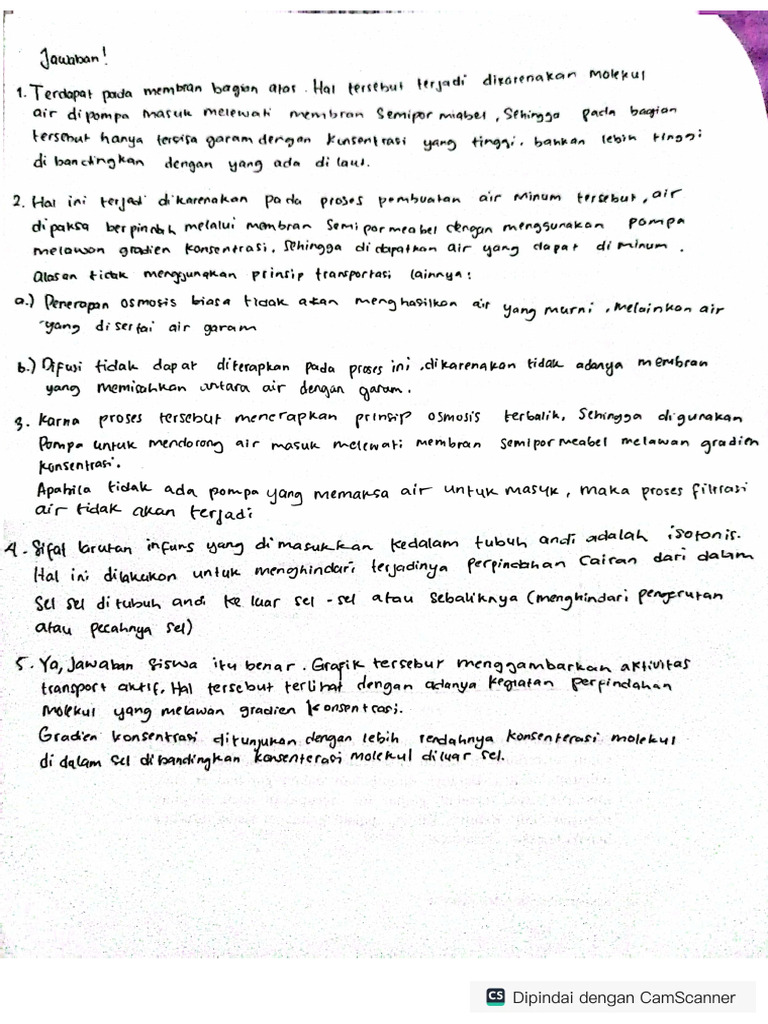 Jawaban!
1. Terdapat pada membran bagian atas. Hal tersebut terjadi dikarenakan molekul
air dipompa masuk melewati membran semipormiabel, sehingga pada bagian
tersebut hanya tersisa garam dengan kunsentrasi yang tinggi. bahkan lebih tinggi
dibandingkan dengan yang ada di laut.
2. Hal ini terjadi dikarenakan pada proses pembuatan air minum tersebut, air
dipaksa berpindah melalui membran semi pormeabel dengan menggunakan pompa
melawan gradien konsentrasi. sehingga didapatkan air yang dapat diminum.
Alasan tidak menggunakan prinsip transportasi lainnya:
a.) Penerapan osmosis biasa tidak akan menghasilkan air yang murni, melainkan air
yang disertai air garam
b.) Difusi tidak dapat diterapkan pada proses ini, dikarenakan tidak adanya membran
yang memisahkan antara air dengan garam.
3. Karna proses tersebut menerapkan prinsip osmosis terbalik, sehingga digunakan
Pompa untuk mendorong air masuk melewati membran semipormeabel melawan gradien
konsentrasi.
Apabila tidak ada pompa yang memaksa air untuk masuk, maka proses filtrasi
air tidak akan terjadi
4. Sifat larutan infuns yang dimasukkan kedalam tubuh andi adalah isotonis.
Hal ini dilakukan untuk menghindari terjadinya perpindahan cairan dari dalam
sel sel ditubuh andi ke luar sel-sel atau sebaliknya (menghindari pengerutan
atau pecahnya sel)
5. Ya, jawaban siswa itu benar. Grafik tersebut menggambarkan aktivitas
transport aktif. Hal tersebut terlihat dengan adanya kegiatan perpindahan
molekul yang melawan gradien konsentrasi.
Gradien konsentrasi ditunjukan dengan lebih rendahnya konsenterasi molekul
di dalam sel dibandingkan konsenterasi molekul diluar sel.
CS Dipindai dengan CamScanner